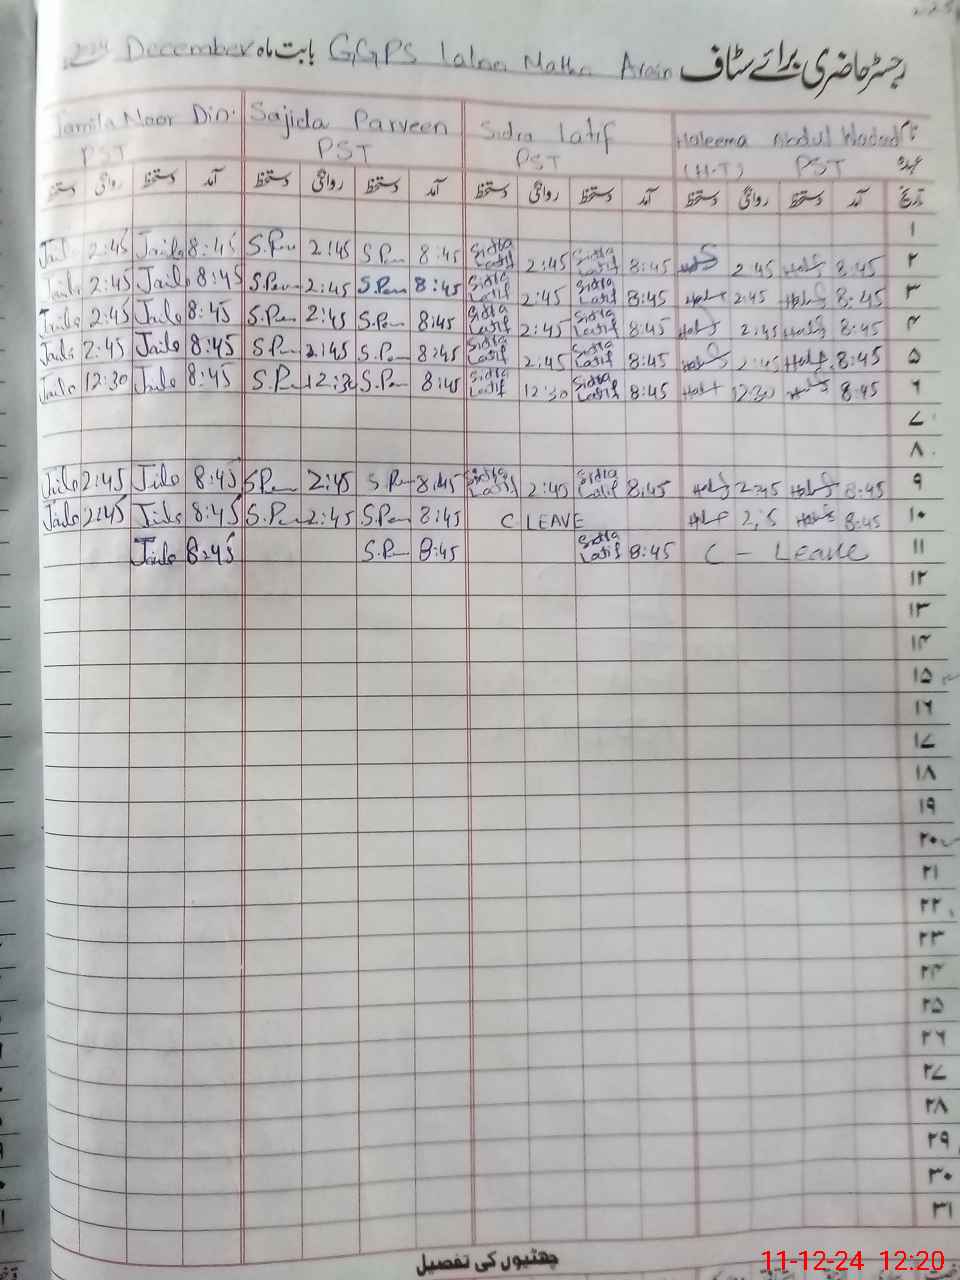 رجسٹر حاضری برائے سٹاف GGPS Arain بابت ماہ December 2024
نام Haleema Abdul Wadood Sidra Latif Sajida Parveen Jamila Noor Din.
عہدہ PST (H-T) PST PST PST
تاریخ آمد دستخط روانگی دستخط آمد دستخط روانگی دستخط آمد دستخط روانگی دستخط آمد دستخط روانگی دستخط
۱
۲ 8:45 2:45 8:45 Sidra Latif 2:45 Sidra Latif 8:45 S.Per 2:45 S.Per 8:45 Jaila 2:45 Jaila
۳ 8:45 2:45 8:45 Sidra Latif 2:45 Sidra Latif 8:45 S.Per 2:45 S.Per 8:45 Jaila 2:45 Jaila
۴ 8:45 2:45 8:45 Sidra Latif 2:45 Sidra Latif 8:45 S.Per 2:45 S.Per 8:45 Jaila 2:45 Jaila
۵ 8:45 2:45 8:45 Sidra Latif 2:45 Sidra Latif 8:45 S.Per 2:45 S.Per 8:45 Jaila 2:45 Jaila
۶ 8:45 12:30 8:45 Sidra Latif 12:30 Sidra Latif 8:45 S.Per 12:30 S.Per 8:45 Jaila 12:30 Jaila
۷
۸
۹ 8:45 2:45 8:45 Sidra Latif 2:45 Sidra Latif 8:45 S.Per 2:45 S.Per 8:45 Jaila 2:45 Jaila
۱۰ 8:45 C LEAVE 8:45 S.Per 2:45 S.Per 8:45 Jaila 2:45 Jaila
۱۱ C - Leave 8:45 Sidra Latif 8:45 S.Per 8:45 Jaila
۱۲
۱۳
۱۴
۱۵
۱۶
۱۷
۱۸
۱۹
۲۰
۲۱
۲۲
۲۳
۲۴
۲۵
۲۶
۲۷
۲۸
۲۹
۳۰
۳۱
چھٹیوں کی تفصیل
11-12-24 12:20